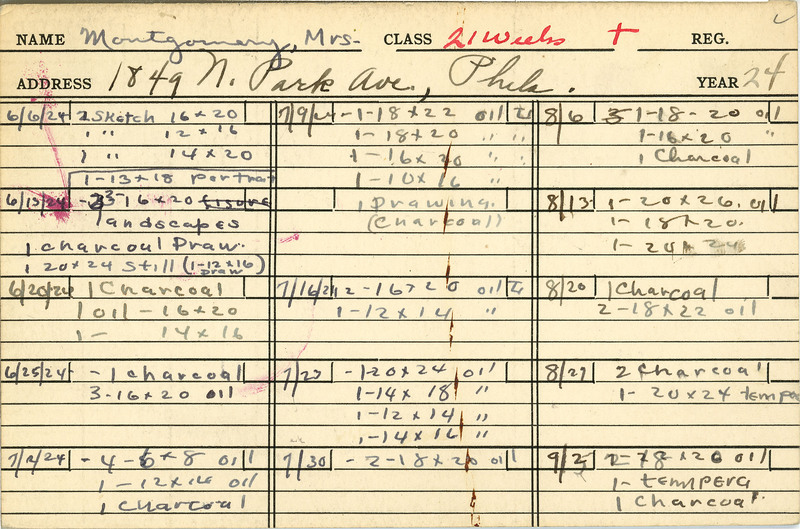 NAME Montgomery, Mrs. CLASS 21 Weeks + REG.
ADDRESS 1849 N. Park Ave., Phila. YEAR 24
6/6/24 2 Sketch 16 x 20
1 " 12 x 16
1 " 14 x 20
1 - 13 x 18 Portrait
6/13/24 - 3 - 16 x 20 figure
landscapes
1 charcoal Draw.
1 20 x 24 Still (1-12 x 16 draw)
6/20/24 1 Charcoal
1 oil - 16 x 20
1 - 14 x 16
6/25/24 - 1 charcoal
3 - 16 x 20 oil
7/2/24 - 4 - 6 x 8 oil
1 - 12 x 16 oil
1 Charcoal
7/9/24 - 1 - 18 x 22 oil
1 - 18 x 20 "
1 - 16 x 20 "
1 - 10 x 16 "
1 Drawing
(Charcoal)
7/16/24 2 - 16 x 20 oil
1 - 12 x 14 "
7/23 - 1 - 20 x 24 oil
1 - 14 x 18 "
1 - 12 x 14 "
1 - 14 x 16 "
7/30 - 2 - 18 x 20 oil
8/6 1 - 18 - 20 oil
1 - 16 x 20 "
1 Charcoal
8/13 1 - 20 x 26 oil
1 - 18 x 20
1 - 20 x 24
8/20 1 Charcoal
2 - 18 x 22 oil
8/27 2 Charcoal
1 - 20 x 24 tempera
9/2 2 - 18 x 20 oil
1 - tempera
1 Charcoal